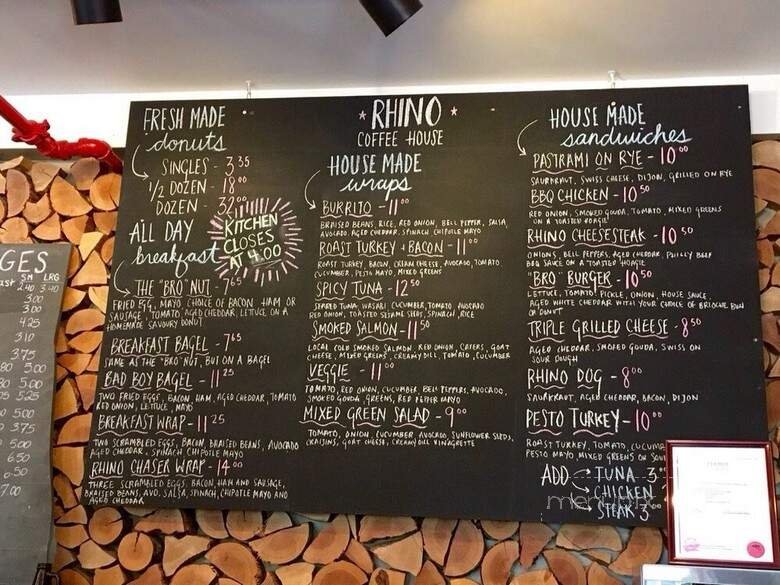 FRESH MADE
donuts
SINGLES - 3.35
1/2 DOZEN - 18.00
DOZEN - 32.00
KITCHEN
CLOSES
AT 4.00
ALL DAY
breakfast
THE "BRO" NUT - 7.65
FRIED EGG, MAYO CHOICE OF BACON HAM OR
SAUSAGE, TOMATO AGED CHEDDAR, LETTUCE, ON A
HOMEMADE SAVOURY DONUT
BREAKFAST BAGEL - 7.65
SAME AS THE "BRO" NUT, BUT ON A BAGEL
BAD BOY BAGEL - 11.25
TWO FRIED EGGS, BACON, HAM, AGED CHEDDAR, TOMATO
RED ONION, LETTUCE, MAYO
BREAKFAST WRAP - 11.25
TWO SCRAMBLED EGGS, BACON, BRAISED BEANS, AVOCADO
AGED CHEDDAR, SPINACH, CHIPOTLE MAYO
RHINO CHASER WRAP - 14.00
THREE SCRAMBLED EGGS, BACON, HAM AND SAUSAGE,
BRAISED BEANS, AVO, SALSA, SPINACH, CHIPOTLE MAYO AND
AGED CHEDDAR
* RHINO *
COFFEE HOUSE
HOUSE MADE
wraps
BURRITO - 11.00
BRAISED BEANS, RICE, RED ONION, BELL PEPPER, SALSA
AVOCADO, AGED CHEDDAR, SPINACH CHIPOTLE MAYO
ROAST TURKEY + BACON - 11.00
ROAST TURKEY, BACON, CREAM CHEESE, AVOCADO, TOMATO,
CUCUMBER, PESTO MAYO, MIXED GREENS
SPICY TUNA - 12.50
SEARED TUNA, WASABI CUCUMBER, TOMATO AVOCADO
RED ONION, TOASTED SESAME SEEDS, SPINACH, RICE
SMOKED SALMON - 11.50
LOCAL COLD SMOKED SALMON, RED ONION, CAPERS, GOAT
CHEESE, MIXED GREENS, CREAMY DILL, TOMATO, CUCUMBER
VEGGIE - 11.00
TOMATO, RED ONION, CUCUMBER, BELL PEPPERS, AVOCADO,
SMOKED GOUDA, GREENS, RED PEPPER MAYO
MIXED GREEN SALAD - 9.00
TOMATO, ONION, CUCUMBER AVOCADO, SUNFLOWER SEEDS,
CRAISINS, GOAT CHEESE, CREAMY DILL VINAGRETTE
HOUSE MADE
sandwiches
PASTRAMI ON RYE - 10.00
SAURKRAUT, SWISS CHEESE, DIJON, GRILLED ON RYE
BBQ CHICKEN - 10.50
RED ONION, SMOKED GOUDA, TOMATO, MIXED GREENS
ON A TOASTED HOAGIE
RHINO CHEESESTEAK - 10.50
ONIONS, BELL PEPPERS, AGED CHEDDAR, PHILLY BEEF
BBQ SAUCE ON A TOASTED HOAGIE
"BRO" BURGER - 10.50
LETTUCE, TOMATO, PICKLE, ONION, HOUSE SAUCE,
AGED WHITE CHEDDAR WITH YOUR CHOICE OF BRIOCHE BUN
OR DONUT
TRIPLE GRILLED CHEESE - 8.50
AGED CHEDDAR, SMOKED GOUDA, SWISS ON
SOUR DOUGH
RHINO DOG - 8.00
SAURKRAUT, AGED CHEDDAR, BACON, DIJON
PESTO TURKEY - 10.00
ROAST TURKEY, TOMATO, CUCUMB
PESTO MAYO, MIXED GREENS ON SOU
ADD
TUNA 3.
CHICKEN
STEAK 3.
GES
SM LRG
2.40 3.40
3.00
3.00
4.25
3.10
3.75
5.00
5.00
5.25
5.00
3.75
5.00
6.50
5.50
7.00